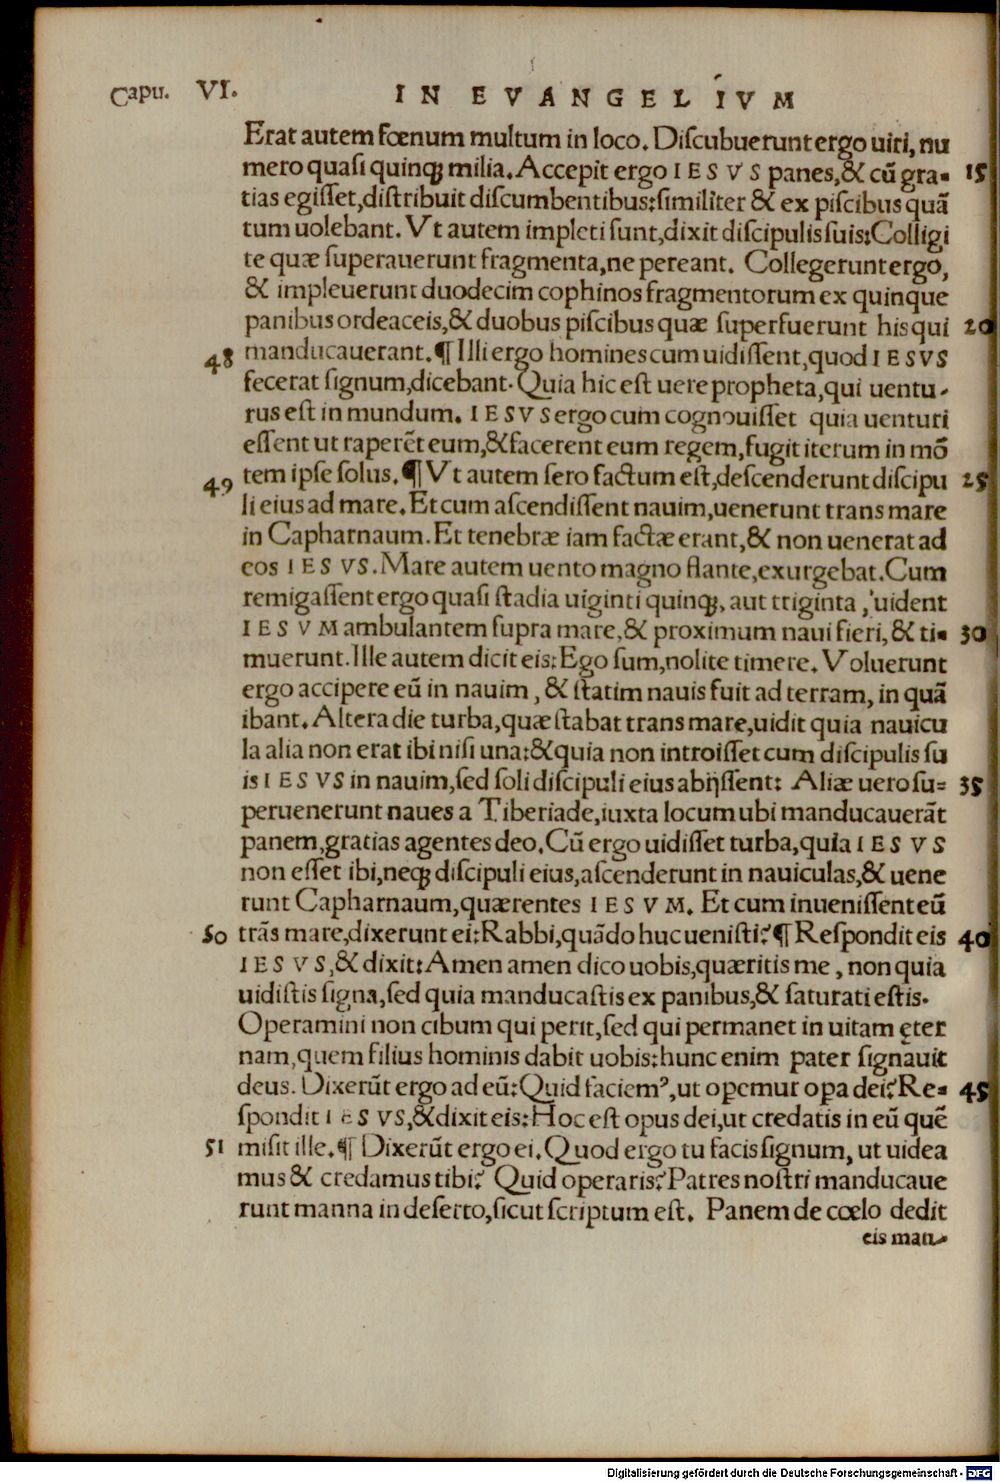 Capu. VI. IN EVANGELIVM
Erat autem fœnum multum in loco. Diſcubuerunt ergo uiri, nu
mero quaſi quinqꝫ milia. Accepit ergo IESVS panes, & cū gra- 15
tias egiſſet, diſtribuit diſcumbentibus: ſimiliter & ex piſcibus quā
tum uolebant. Vt autem impleti ſunt, dixit diſcipulis ſuis: Colligi
te quæ ſuperauerunt fragmenta, ne pereant. Collegerunt ergo,
& impleuerunt duodecim cophinos fragmentorum ex quinque
panibus ordeaceis, & duobus piſcibus quæ ſuperfuerunt his qui 20
48 manducauerant. ¶ Illi ergo homines cum uidiſſent, quod IESVS
fecerat ſignum, dicebant. Quia hic eſt uere propheta, qui uentu-
rus eſt in mundum. IESVS ergo cum cognouiſſet quia uenturi
eſſent ut raperēt eum, & facerent eum regem, fugit iterum in mō
49 tem ipſe ſolus. ¶ Vt autem ſero factum eſt, deſcenderunt diſcipu 25
li eius ad mare. Et cum aſcendiſſent nauim, uenerunt trans mare
in Capharnaum. Et tenebræ iam factæ erant, & non uenerat ad
eos IESVS. Mare autem uento magno flante, exurgebat. Cum
remigaſſent ergo quaſi ſtadia uiginti quinqꝫ, aut triginta, uident
IESVM ambulantem ſupra mare, & proximum naui fieri, & ti- 30
muerunt. Ille autem dicit eis: Ego ſum, nolite timere. Voluerunt
ergo accipere eū in nauim, & ſtatim nauis fuit ad terram, in quā
ibant. Altera die turba, quæ ſtabat trans mare, uidit quia nauicu
la alia non erat ibi niſi una: & quia non introiſſet cum diſcipulis ſu
is IESVS in nauim, ſed ſoli diſcipuli eius abijſſent: Aliæ uero ſu= 35
peruenerunt naues a Tiberiade, iuxta locum ubi manducauerāt
panem, gratias agentes deo. Cū ergo uidiſſet turba, quia IESVS
non eſſet ibi, neqꝫ diſcipuli eius, aſcenderunt in nauiculas, & uene
runt Capharnaum, quærentes IESVM. Et cum inueniſſent eū
50 trās mare, dixerunt ei: Rabbi, quādo huc ueniſti? ¶ Reſpondit eis 40
IESVS, & dixit: Amen amen dico uobis, quæritis me, non quia
uidiſtis ſigna, ſed quia manducaſtis ex panibus, & ſaturati eſtis.
Operamini non cibum qui perit, ſed qui permanet in uitam ęter
nam, quem filius hominis dabit uobis: hunc enim pater ſignauit
deus. Dixerūt ergo ad eū: Quid faciemꝰ, ut opemur opa dei? Re- 45
ſpondit IESVS, & dixit eis: Hoc eſt opus dei, ut credatis in eū quē
51 miſit ille. ¶ Dixerūt ergo ei. Quod ergo tu facis ſignum, ut uidea
mus & credamus tibi? Quid operaris? Patres noſtri manducaue
runt manna in deſerto, ſicut ſcriptum eſt. Panem de cœlo dedit
eis man-
Digitalisierung gefördert durch die Deutsche Forschungsgemeinschaft - DFG